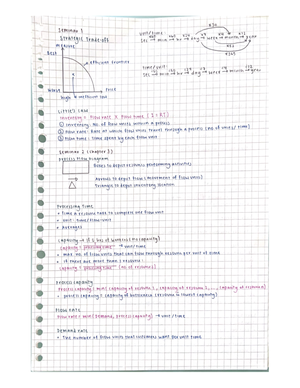 Seminar 1
Strategic Trade-off
Measure
Best
efficient frontier
Worst
Price
high → medium low
unit/time:
sec → min → hr → day → week → month → year
time/unit:
sec → min → hr → day → week → month → year
Little's Law
Inventory = Flow rate × Flow time [I = RT]
① Inventory: No. of flow units within a process
② Flow rate: Rate at which flow units travel through a process (no. of units / time)
③ Flow time: time spent by each flow unit
Seminar 2 (Chapter 3)
Process Flow Diagram
Boxes to depict resources performing activities
Arrows to depict flow (movement of flow units)
Triangle to depict inventory location
Processing Time
• time a resource takes to complete one flow unit
• unit: time/flow unit
• Averages
• max no. of flow units that can flow through resource per unit of time
• if there are more than 1 resource:
Process capacity
Process capacity = min{capacity of resource 1, capacity of resource 2, ..., capacity of resource n}
• process capacity = capacity of bottleneck (resource w lowest capacity)
Flow rate
Flow rate = min{demand, process capacity} → unit/time
Demand rate
• the number of flow units that customers want per unit time